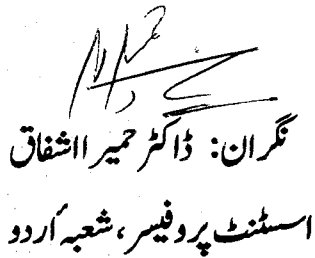 نگران: ڈاکٹر حمیرا اشفاق
اسسٹنٹ پروفیسر، شعبہ اُردو